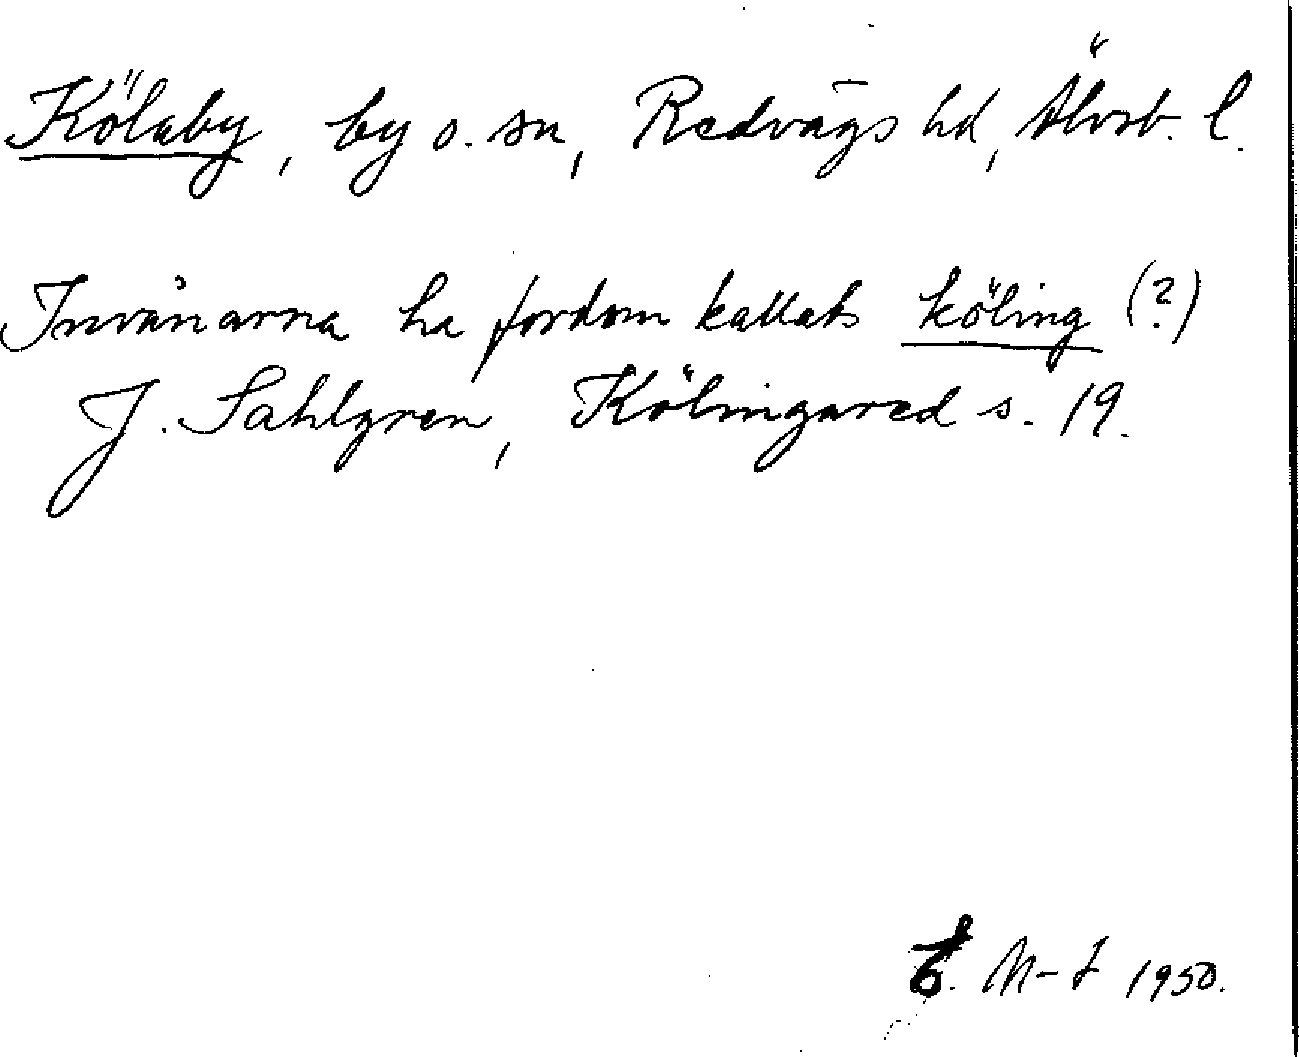 Kölaby, by o. sn, Redvägs hd, Älvsb. l.
Invånarna ha fordom kallats köling (?)
J. Sahlgren, Kölingared s. 19.
M-L 1950.